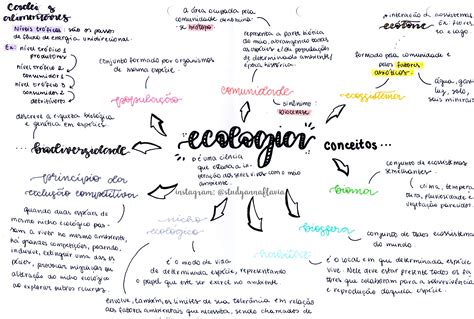 Cadeias alimentares
níveis tróficos: são os passos
do fluxo de energia, unidirecional.
Ex: nível trófico 1
produtores
nível trófico 2
consumidor 1
nível trófico 3
consumidor 2
detritívoros
a área ocupada pela
comunidade
biótopo
representa a parte biótica
do meio, abrangendo todas
as espécies e/ou populações
de determinado ambiente/
época histórica.
interação de ecossistemas
ecótone
formado pela comunidade e
pelos fatores
abióticos
água, gases
luz, solo,
seus minerais
conjunto formado por organismos
de mesma espécie.
população
comunidade
sinônimo:
biocenose
ecossistema
descreve a riqueza biológica
e genética em espécies
...biodiversidade
ecologia
conceitos...
é uma ciência
que estuda a in-
teração dos seres vivos com o
meio ambiente.
instagram: @studyannaflavia
conjunto de ecossistemas
semelhantes
bioma
clima, tempera-
tura, pluviosidade e
vegetação parecidos
princípio da
exclusão competitiva
quando duas espécies de
mesmo nicho ecológico pas-
sam a viver no mesmo ambiente,
há grande competição, podendo,
inclusive, extinguir uma das es-
pécies, provocar migração ou
alteração do nicho ecológico
ao explorar outros recursos.
nicho
ecológico
é o modo de vida
de determinada espécie, representando
o papel que ela exerce no ambiente.
biosfera
conjunto de todos ecossistemas
do mundo.
habitat
é o local em que determinada espécie
vive. Nele deve estar presente todos os fa-
tores que colaboram para a sobrevivência
e reprodução daquela espécie.
envolve, também, os limites de sua tolerância em relação
aos fatores ambientais que necessita, sendo chamados de